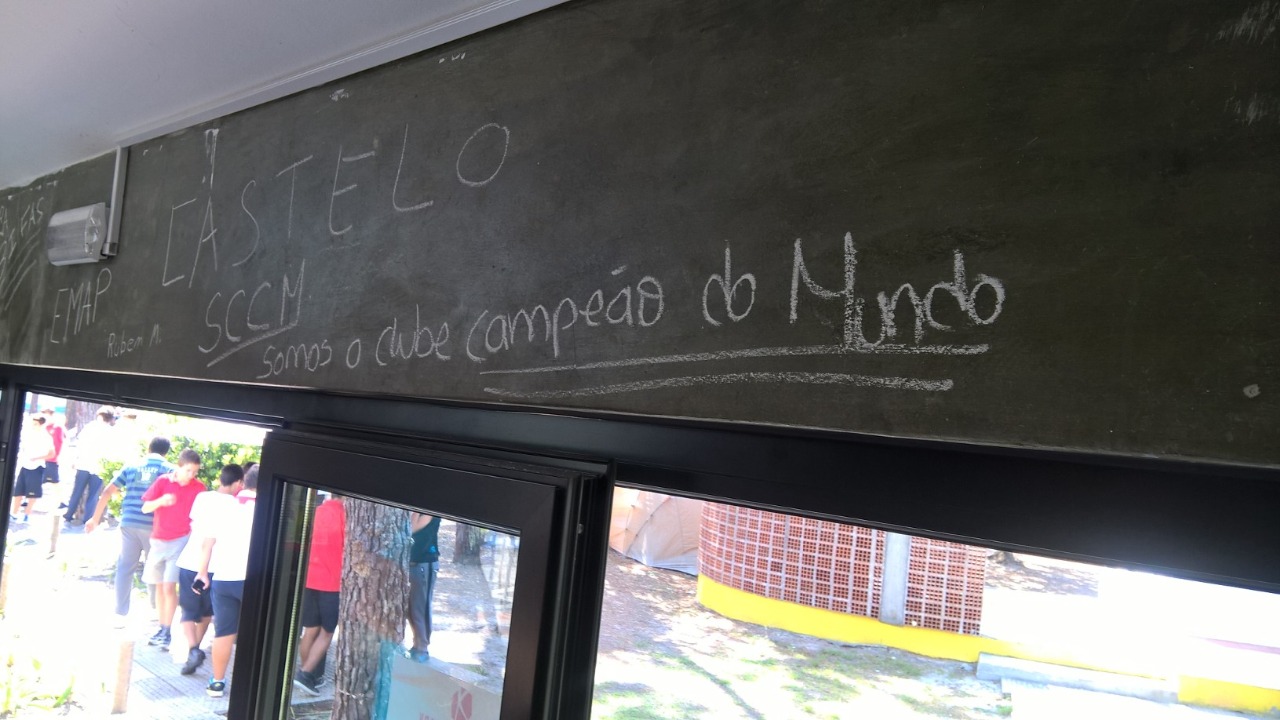 CASTELO
EMAP
Ruben M.
SCCM
somos o clube campeão do Mundo